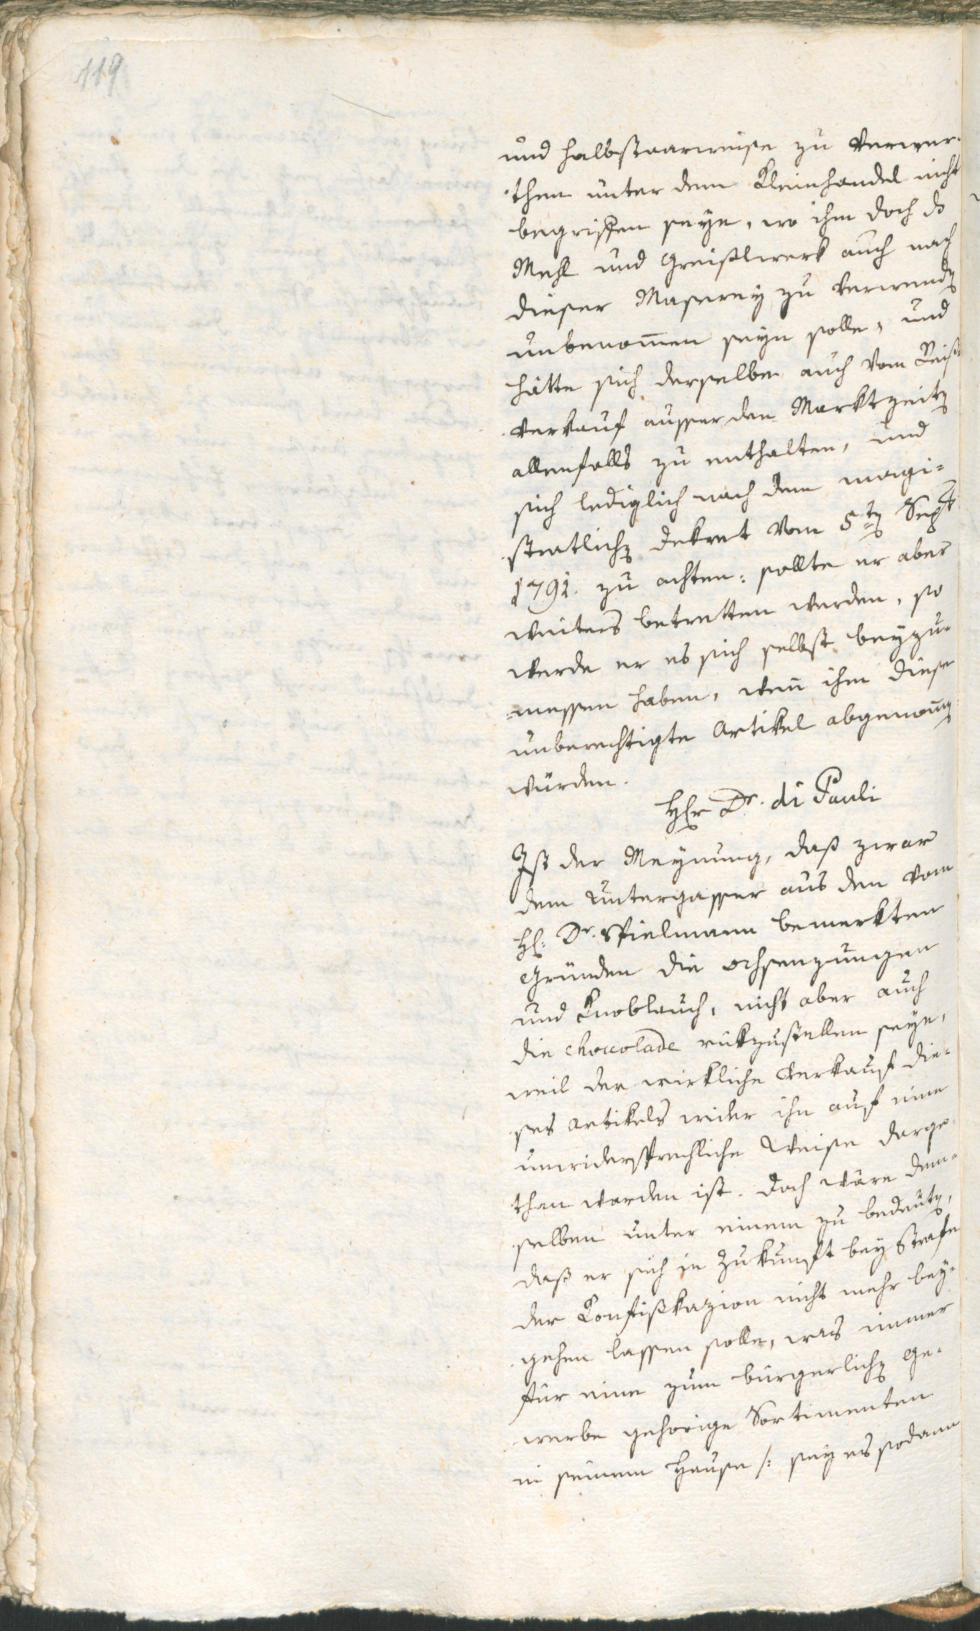 119
und halbstaarweise zu verwer-
then unter dem Kleinhandel nicht
begriffen seye, wo ihm doch ds
Mehl und Greißlwerk auch nach
dieser Maserey zu verwenden
unbenommen seyn solle, und
hätte sich derselbe auch vom Reiß
Verkauf ausser den Marktzeiten
allenfalls zu enthalten, und
sich lediglich nach dem magi-
stratlichen Dekret vom 5ten Sept
1791. zu achten: sollte er aber
weiters betretten werden, so
werde er es sich selbst beyzu-
messen haben, wenn ihm diese
unberechtigte Artikel abgenommen
würden.
Herr Dr. di Pauli
Ist der Meynung, daß zwar
dem Untergasser aus den vom
H: Dr. Spielmann bemerkten
Gründen die Ochsenzungen
und Knoblauch, nicht aber auch
die Choccolade rükzustellen seye,
weil der wirkliche Verkauf die-
ses Artikels wider ihn auf eine
unwidersprechliche Weise darge-
than worden ist. Doch wäre dem-
selben unter einem zu bedeuten,
daß er sich in Zukunft bey Strafe
der Confiskazion nicht mehr bey-
gehen lassen solle, was immer
für eine zum bürgerlichen Ge-
werbe gehörige Sortimenten
in seinem Hause /: sey es sodann